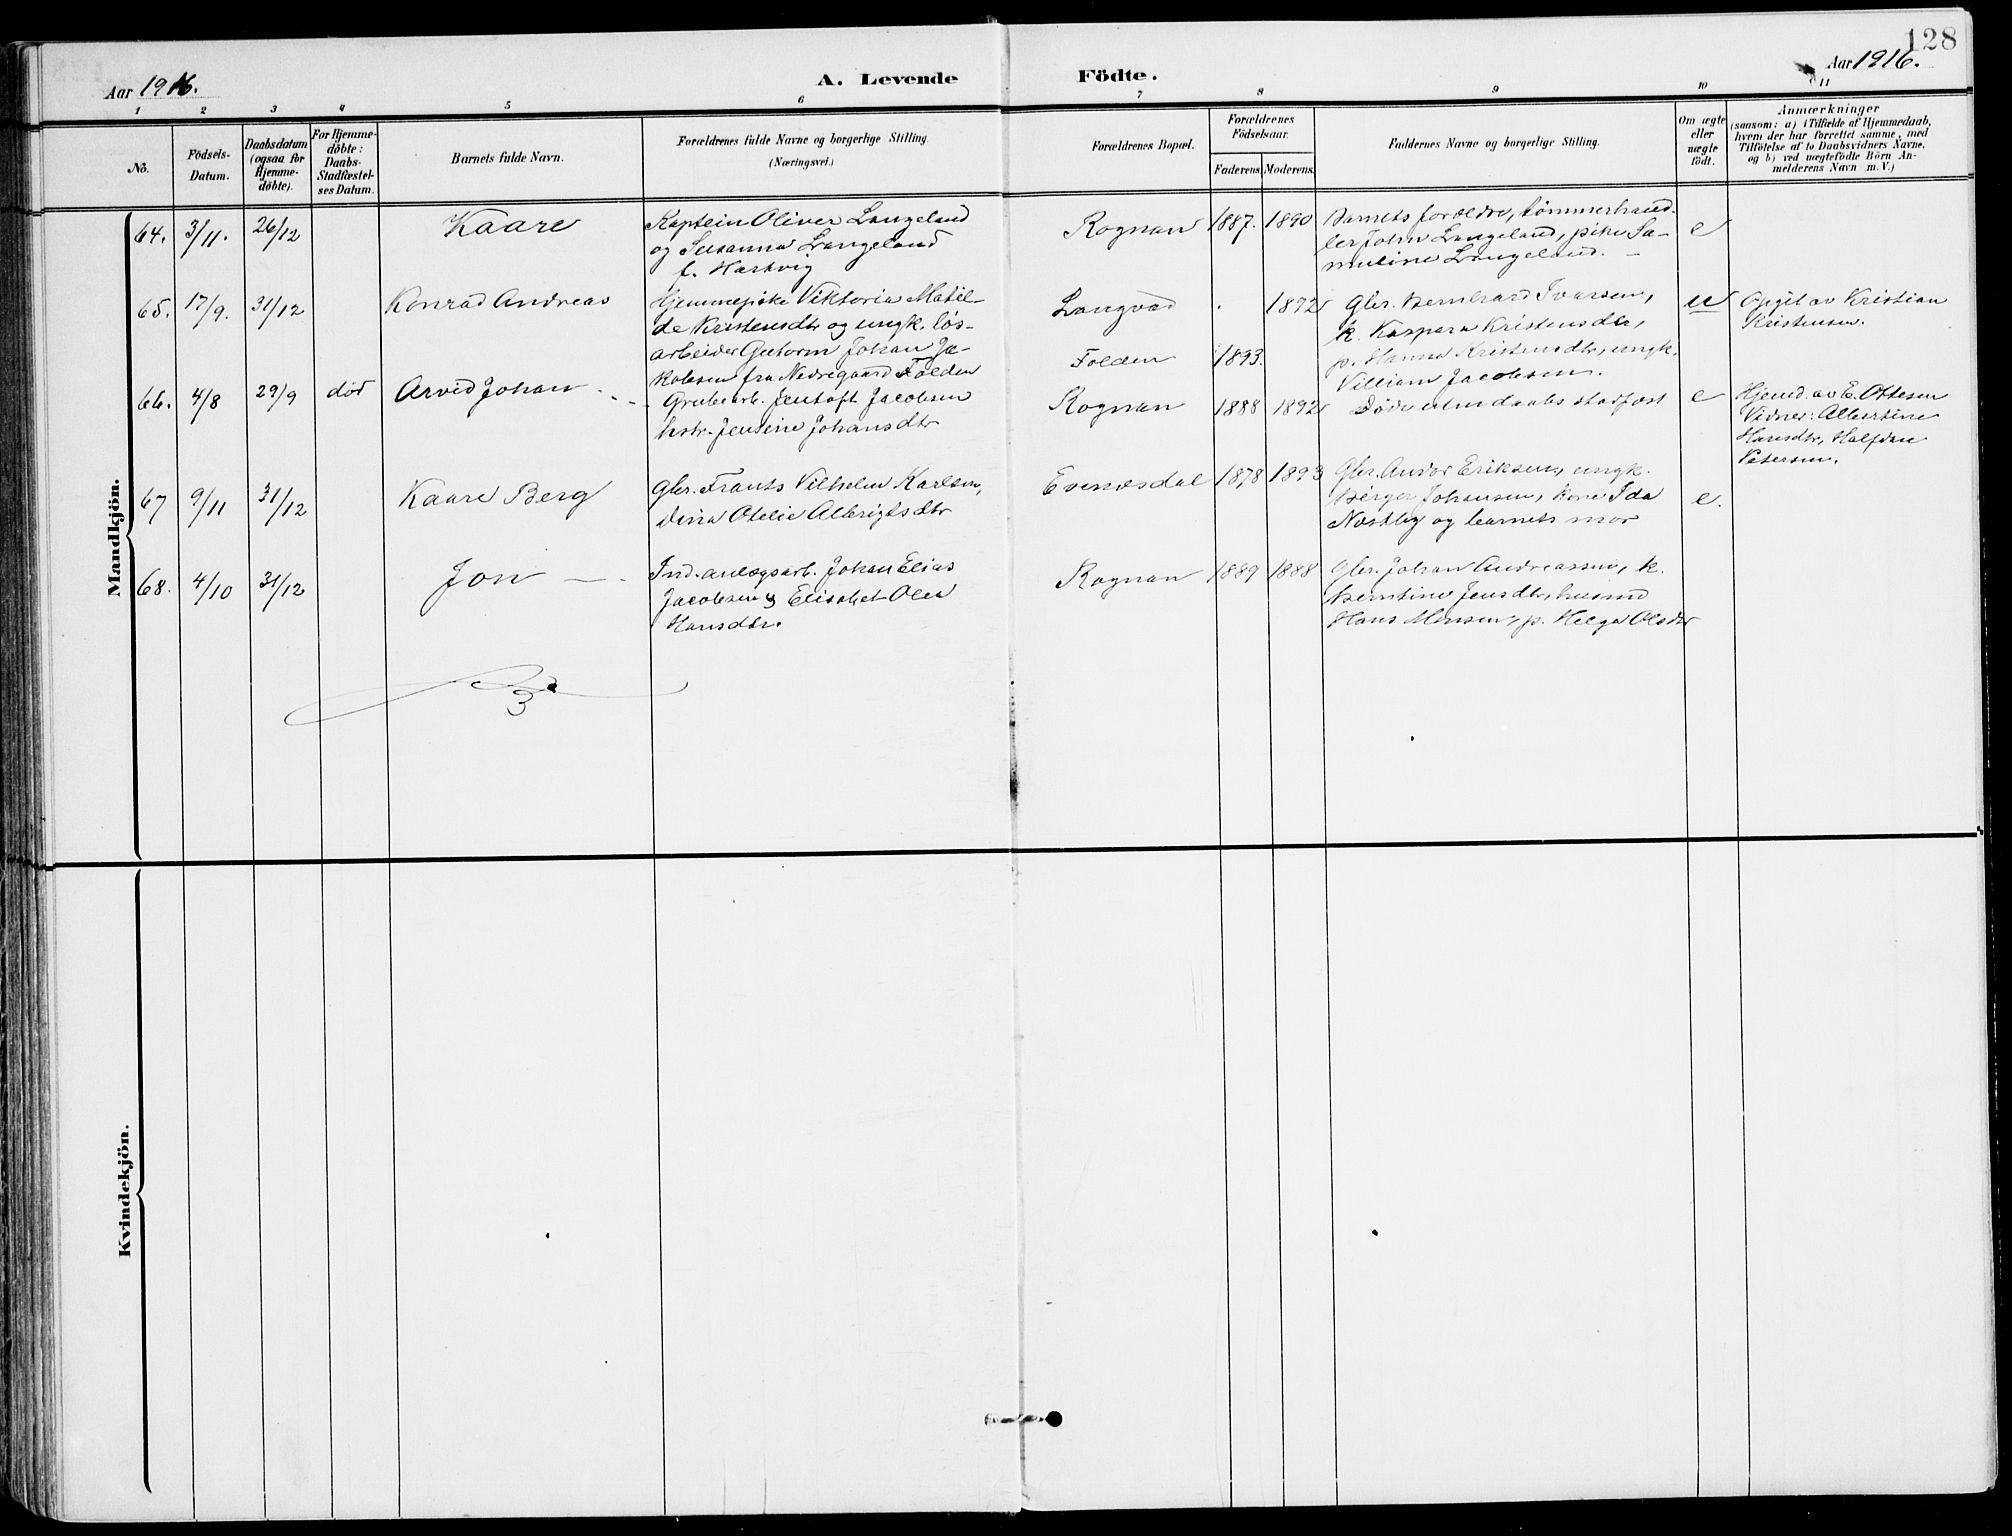 128
Aar 1916.
A. Levende
Födte.
Aar 1916.
1 2 3 4 5 6 7 8 9 10 11
No.
Födsels-
Datum.
Daabsdatum
(ogsaa for
Hjemme-
döbte).
For Hjemme-
döbte:
Daabs-
Stadfæstel-
ses Datum.
Barnets fulde Navn.
Forældrenes fulde Navne og borgerlige Stilling.
(Næringsvei.)
Forældrenes Bopæl.
Forældrenes
Födselsaar.
Faderens. Moderens.
Faddernes Navne og borgerlige Stilling.
Om ægte
eller
uægte
födt.
Anmærkninger
(saasom: a) i Tilfælde af Hjemmedaab,
hvem der har forrettet samme, med
Tilföielse af to Daabsvidners Navne.
og b) ved uægtefödte Börn An-
melderens Navn m. V.)
Mandkjön.
64. 3/11. 26/12 Kaare
Kaptein Oliver Langeland
og Susanna Langeland
f. Hartvig
Rognan 1887. 1890
Barnets forældre, tömmerhand-
ler John Langeland, pike Sa-
muline Langeland. –
e
65. 17/9. 31/12 Konrad Andreas
Hjemmepike Viktoria Matil-
de Kristensdtr og ungk. løs-
arbeider Gutorm Johan Ja-
kobsen fra Nedregaard Folden
Langvad . 1892
Folden 1893.
Gbr. Bernhard Ivarsen,
k. Kaspara Kristensdtr,
p. Hanna Kristensdtr, ungk.
Villiam Jacobsen.
u
Opgit av Kristian
Kristensen.
66. 4/8 29/9 død Arvid Johan
Grubearb. Jentoft Jacobsen
hstr. Jensine Johansdtr
Rognan 1888 1892
Døde uten daabs stadfæst
e
Hjemd. av E. Ottesen
Vidner: Albertine
Hansdtr, Halfdan
Petersen.
67 9/11 31/12 Kaare Berg
Gbr. Frants Vilhelm Karlsen,
Dina Otelie Albrigtsdtr
Evenesdal 1878 1893
Gbr. Andor Eriksen, ungk.
Birger Johansen, kone Ida
Næstby og barnets mor
e.
68. 4/10 31/12 Jon
Ind. anlægsarb. Johan Elias
Jacobsen & Elisabet Olea
Hansdtr.
Rognan 1889 1888
Gbr. Johan Andreassen, k.
Berntine Jensdtr, husmd
Hans Monsen, p. Helga Olsdtr
Kvindekjön.